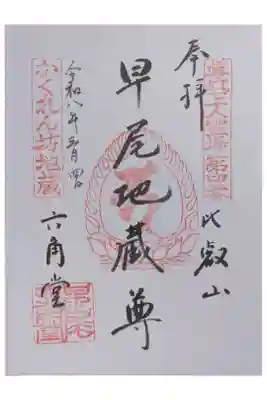 奉拝
比叡山
早尾地蔵尊
六角堂
令和八年五月四日
かくれん坊地蔵